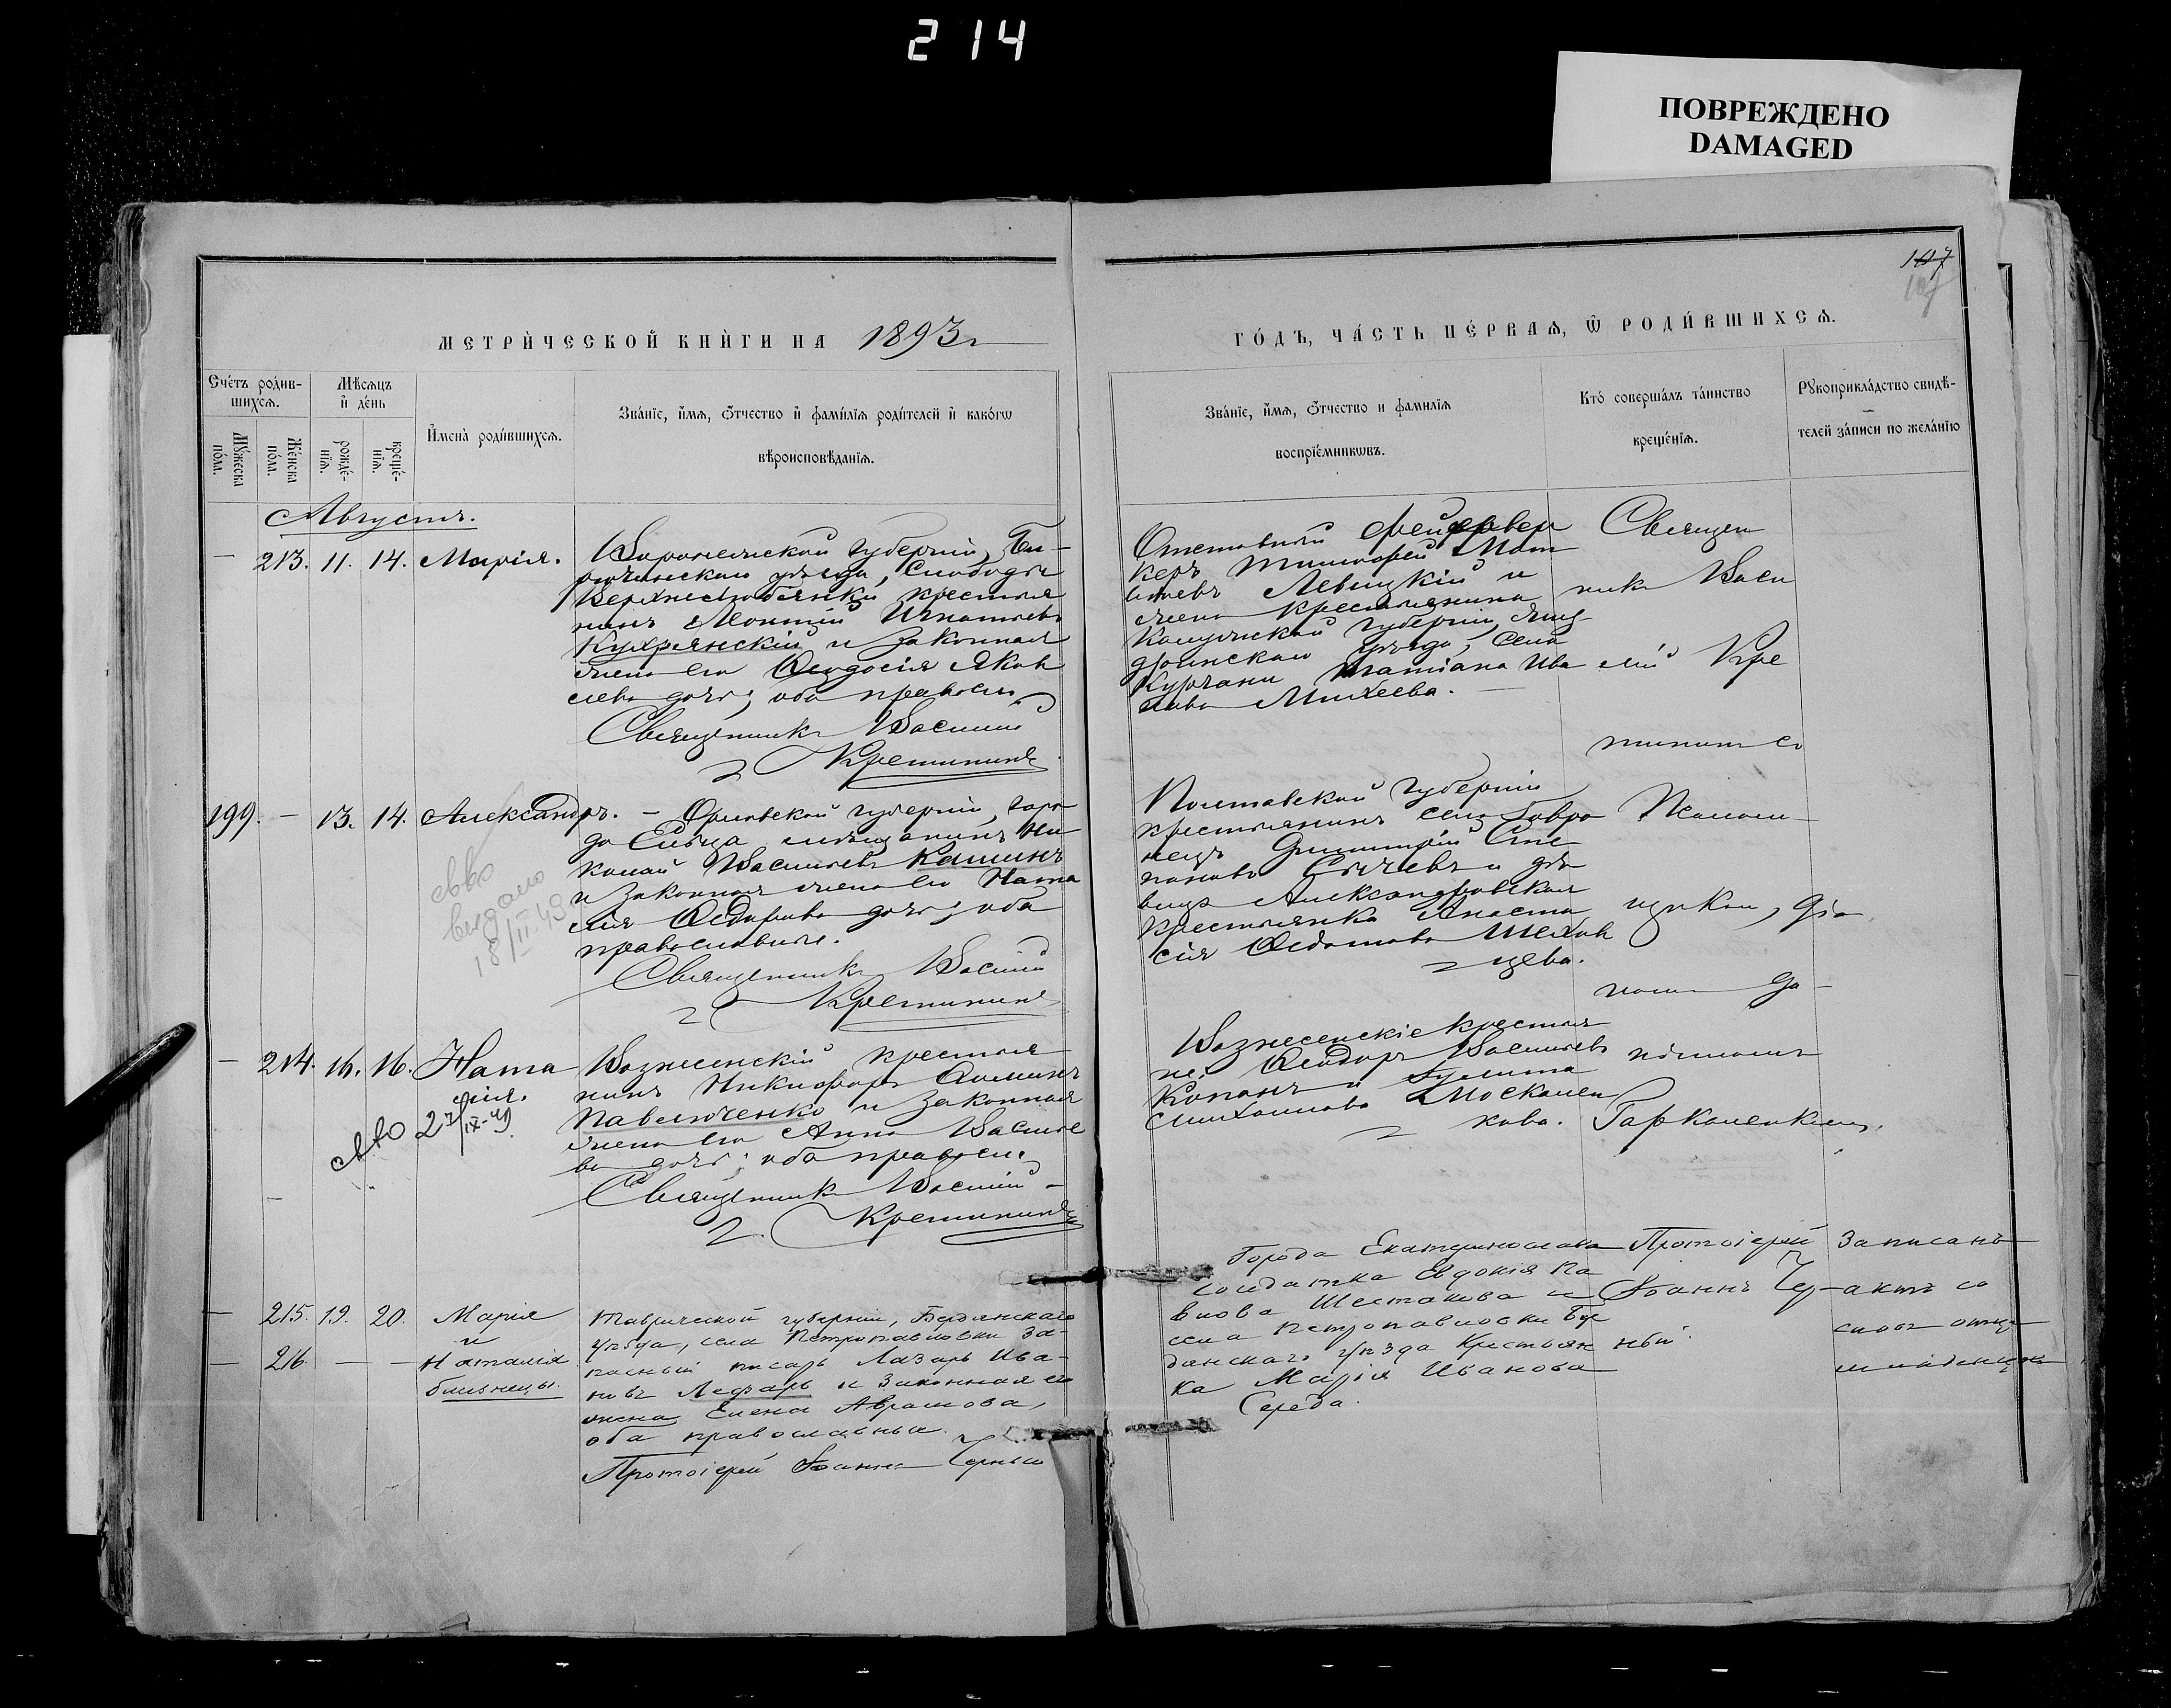 214
ПОВРЕЖДЕНО
DAMAGED
107
107
МЕТРИ́ЧЕСКОЙ КНИ́ГИ НА 1893 г
ГО́ДЪ, ЧА́СТЬ ПЕ́РВАѦ, Ѿ РОДИ́ВШИХСѦ.
Сче́тъ роди́в-
шихсѧ.
Мꙋ́жеска по́ла.
Же́нска по́ла.
Мѣ́сѧцъ
и҆ де́нь
рожде́-
нїѧ.
креще́-
нїѧ.
И҆мена̀ роди́вшихсѧ.
Зва́нїе, и҆́мѧ, ѻ҆́тчество и҆ фами́лїѧ роди́телей и҆ како́гѡ
вѣроисповѣ́данїѧ.
Зва́нїе, и҆́мѧ, ѻ҆́тчество и фамилїѧ
воспрїе́мникѡвъ.
Кто̀ соверша́лъ та́инство
креще́нїѧ.
Рꙋкоприкла́дство свидѣ́-
телей за́писи по жела́нїю
Августъ.
– 213. 11. 14. Марія.
Воронежской губерніи, Би-
рюченскаго уѣзда, Слободы
Верхнесо крестья
нинъ Леонтій Игнатьевъ
Кухрянскій и законная
жена его Ѳеодосія Яков
лева дочь; оба правосл.
Священникъ Василій
Кретининъ
Отставной фейервер
керъ Тимофей Мат
вѣевъ Левицкій и
жена крестьянина
Калужской губерніи,
уѣзда, села
Курчани Татіана Ива
нова Михеева.
Священ
никъ Васи
лій Кре
тининъ съ
199. – 13. 14. Александръ.
– Орловской губерніи, горо
да Ельца мѣщанинъ Ни
колай Васильевъ Кашинъ
и законная жена его Ната
лія Ѳедорова дочь; оба
православные.
Священникъ Василій
Кретининъ
св-во
выдано
18/II.49
Полтавской губерніи
крестьянинъ села Бобро
Димитрій Сте
пановъ Сычевъ и дѣ
вица Александровская
крестьянка Анаста
сія Ѳедотова Шехов
цева.
Псалом-
щикомъ, діа
кономъ Да-
ніиломъ
Гаркаленкомъ.
– 214. 16. 16. Ната
лія.
св-во 27/IX-49
Вознесенскій крестья
нинъ Никифоръ Ѳоминъ
Павлюченко и законная
жена его Анна Василье
ва дочь; оба правосл.
Священникъ Василій
Кретининъ
Вознесенскіе крестья
не: Ѳеодоръ Васильевъ
Копанъ и Гулита
Михаилова Москален
кова.
– 215. 19. 20. Марія
и
– 216. – – Наталія
близнецы.
Таврической губерніи, Бердянскаго
уѣзда, села Петропавловки за-
пасный писарь Лазарь Ива-
новъ Лефарь и законная его
жена Елена Аврамова,
оба православные.
Протоіерей Іоаннъ Черный
Города Екатеринослава
солдатка Евдокія Па
влова Шестакова и
села Петропавловки Бер
дянскаго уѣзда крестьян
ка Марія Иванова
Середа.
Протоіерей
Іоаннъ Чер-
ный.
Записанъ
актъ со
словъ отца